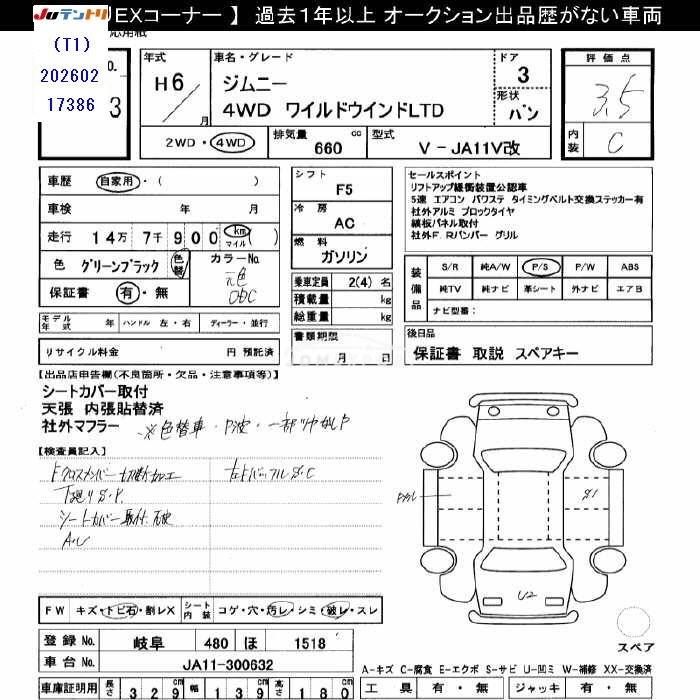 JUテントリ EXコーナー 】 過去1年以上 オークション出品歴がない車両
(T1)
202602
17386
No.
3
年式
H6/月
車名・グレード
ジムニー
4WD ワイルドウインドLTD
ドア
3
形状
バン
評価点
3.5
内装
C
2WD・4WD
排気量 660 cc
型式 V－JA11V改
車歴 自家用・( )
車検 年 月
走行 14万 7千 900 km マイル ( )
色 グリーンブラック 色替
カラーNo. 元色 0BC
保証書 有・無
シフト
F5
冷房
AC
燃料
ガソリン
乗車定員 2(4) 名
積載量 kg
総重量 kg
セールスポイント
リフトアップ緩衝装置公認車
5速 エアコン パワステ タイミングベルト交換ステッカー有
社外アルミ ブロックタイヤ
縞板パネル取付
社外F．Rバンパー グリル
装備品
S/R 純A/W P/S P/W ABS
純TV 純ナビ 革シート 外ナビ エアB
ナビ型番：
モデル年式 年 ハンドル 左・右 ディーラー・並行
リサイクル料金 円 預託済
書類期限
月 日
後日品
保証書 取説 スペアキー
【出品店申告欄(不良箇所・欠品・注意事項等)】
シートカバー取付
天張 内張貼替済
社外マフラー
※色替車・P波・一部ツヤなしP
【検査員記入】
Fクロスメンバー切断加工
下廻りS.P.
シートカバー取付.
A.U
S.C
S1
U2
FW キズ・トビ石・割レX
シート内装 コゲ・穴・汚レ・シミ・破レ・スレ
登録No. 岐阜 480 ほ 1518
車台No. JA11-300632
スペア
A-キズ C-腐食 E-エクボ S-サビ U-凹ミ W-補修 XX-交換済
車庫証明用 長さ 329 幅 139 高さ 180
工具 有・無 ジャッキ 有・無